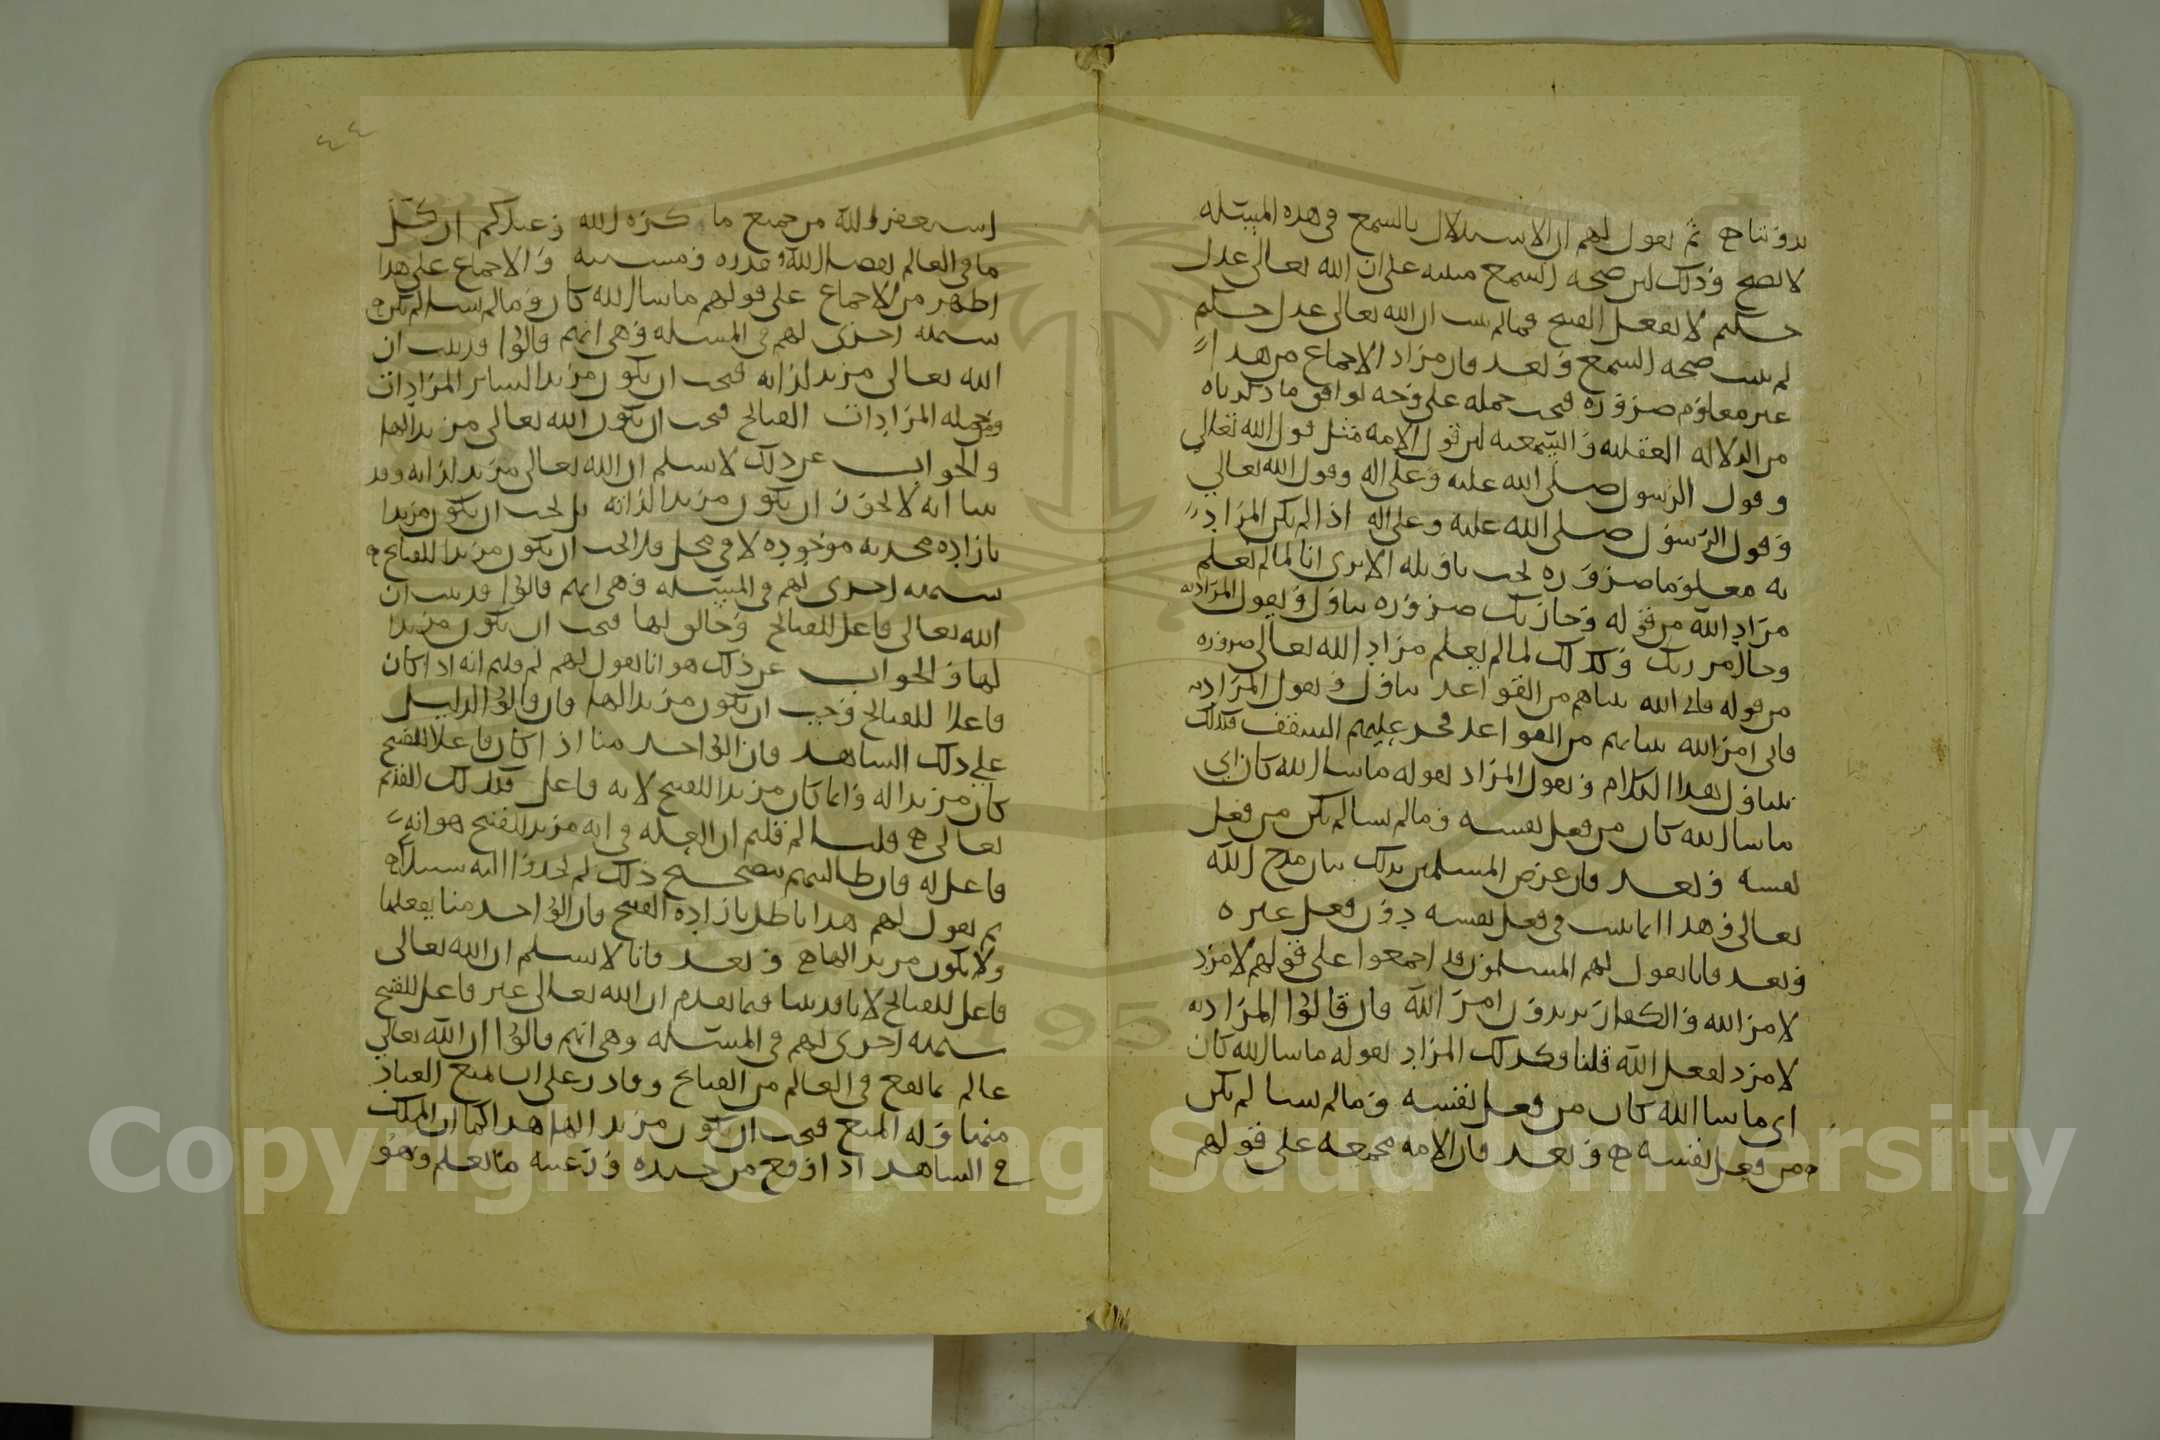 بدو تناج ه ثم نقول لهم ان الاستدلال بالسمع في هذه المسئله
لا يصح وذلك لان صحه السمع مبنيه على ان الله تعالى عدل
حكيم لا يفعل القبيح فما لم يثبت ان الله تعالى عدل حكيم
لم يثبت صحه السمع وبعد فان مراد الاجماع من هذا
غير معلوم ضروره فيجب حمله على وجه يوافق ما ذكرناه
من الدلاله العقليه والسمعيه لان قول الامه مثل قول الله تعالى
وقول الرسول صلى الله عليه وعلى اله وقول الله تعالى
وقول الرسول صلى الله عليه وعلى اله اذا لم يكن المراد
به معلوما ضروره يجب تاويله الا ترى انا لما لم نعلم
مراد الله من قوله وجا ربك ضروره نتاول ونقول المراد به
وجا امر ربك وكذلك لما لم يعلم مراد الله تعالى ضروره
من قوله فاتى الله بنيانهم من القواعد نتاول ونقول المراد به
فاتى امر الله بنيانهم من القواعد فخر عليهم السقف فكذلك
نتاول هذا الكلام ونقول المراد بقوله ما شا الله كان اي
ما شا الله كان من فعل نفسه وما لم يشا لم يكن من فعل
نفسه وبعد فان غرض المسلمين بذلك بيان مدح الله
تعالى وهذا انما يثبت في فعل نفسه دون فعل غيره
وبعد فانا نقول لهم المسلمون قد اجمعوا على قولهم لا مرد
لامر الله والكفار يردون امر الله فان قالوا المراد به
لا مرد لفعل الله قلنا وكذلك المراد بقوله ما شا الله كان
اى ما شا الله كان من فعل نفسه وما لم يشا لم يكن
من فعل نفسه ه وبعد فان الامه مجمعه على قولهم
٤٤
استغفر الله من جميع ما كره الله وعندكم ان كل
ما في العالم بقضا الله وقدره ومشيته والاجماع على هذا
اظهر من الاجماع على قولهم ما شا الله كان وما لم يشا لم يكن ه
شبهه اخرى لهم في المسئله وهى انهم قالوا قد ثبت ان
الله تعالى مريد لذاته فيجب ان يكون مريدا لسائر المرادات
ومن جمله المرادات القبائح فيجب ان يكون الله تعالى مريدا لها
والجواب عن ذلك لا نسلم ان الله تعالى مريد لذاته وقد
بينا انه لا يجوز ان يكون مريدا لذاته بل يجب ان يكون مريدا
باراده محدثه موجوده لا في محل فلا يجب ان يكون مريدا للقبائح ه
شبهه اخرى لهم في المسئله وهى انهم قالوا قد ثبت ان
الله تعالى فاعل للقبائح وخالق لها فيجب ان يكون مريدا
لها والجواب عن ذلك هو انا نقول لهم لم قلتم انه اذا كان
فاعلا للقبائح وجب ان يكون مريدا لها فان قالوا الدليل
على ذلك الشاهد فان الواحد منا اذا كان فاعلا للقبيح
كان مريدا له وانما كان مريدا للقبيح لانه فاعل فكذلك القديم
تعالى ه قلنا لم قلتم ان العله في انه مريد للقبيح هو انه
فاعل له فان طالبتهم بتصحيح ذلك لم يجدوا اليه سبيلا ه
ثم نقول لهم هذا باطل باراده القبيح فان الواحد منا يفعلها
ولا يكون مريدا لها ه وبعد فانا لا نسلم ان الله تعالى
فاعل للقبائح لانا قد بينا فيما تقدم ان الله تعالى غير فاعل للقبيح
شبهه اخرى لهم في المسئله وهى انهم قالوا ان الله تعالى
عالم بما يقع في العالم من القبائح وقادر على ان يمنع العباد
منها وله المنع فيجب ان يكون مريدا لها هذا كما ان الملك
في الشاهد اذا وقع من جنده ورعيته ما يعلم وهو
Copyright © King Saud University
1957